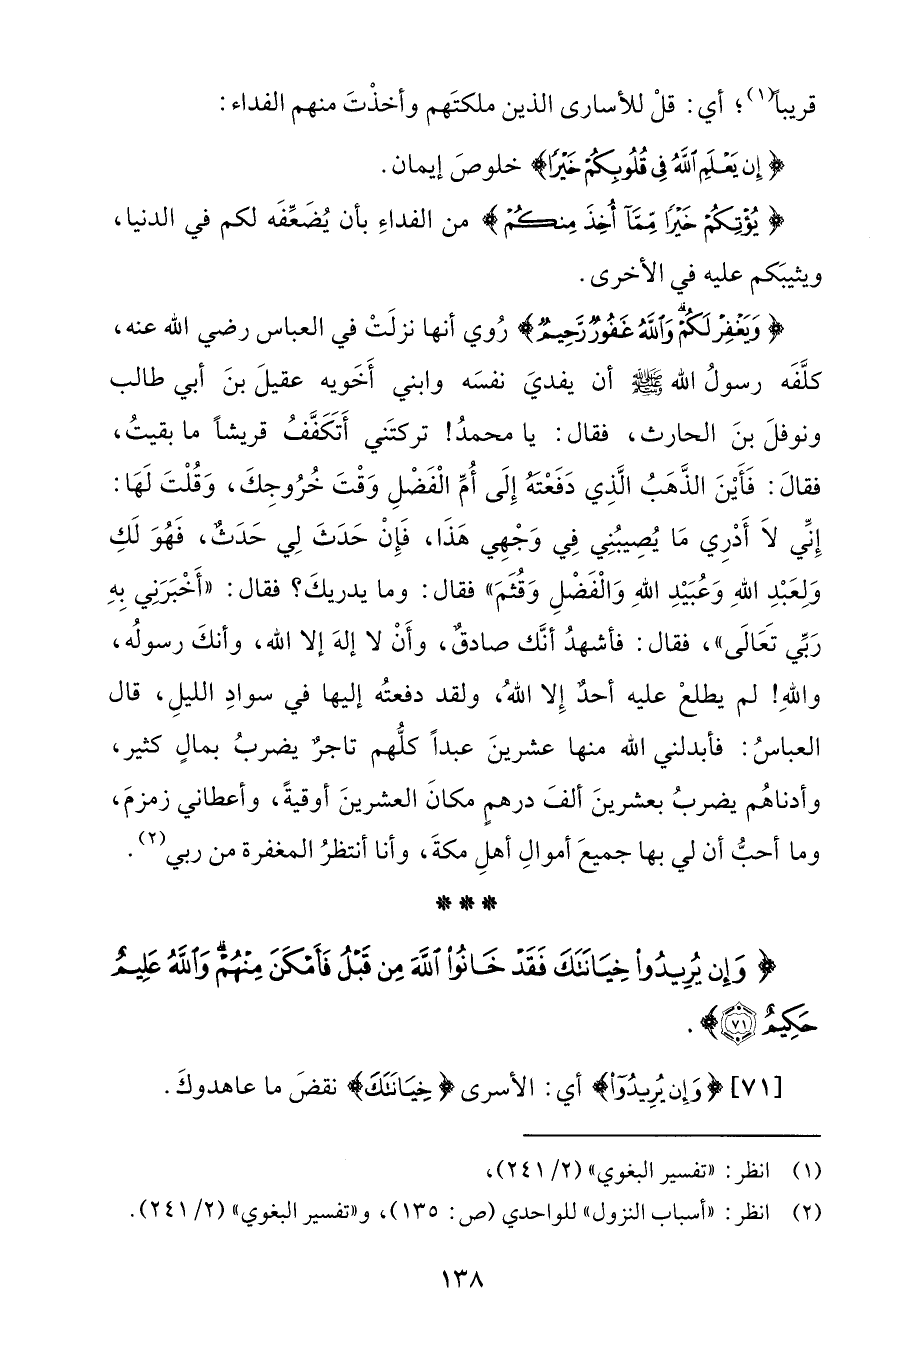 قريباً(١)؛ أي: قلْ للأسارى الذين ملكتَهم وأخذْتَ منهم الفداء:
﴿إِن يَعْلَمِ ٱللَّهُ فِى قُلُوبِكُمْ خَيْرًا﴾ خلوصَ إيمان.
﴿يُؤْتِكُمْ خَيْرًا مِّمَّآ أُخِذَ مِنكُمْ﴾ من الفداءِ بأن يُضَعِّفَه لكم في الدنيا،
ويثيبَكم عليه في الأخرى.
﴿وَيَغْفِرْ لَكُمْ ۗ وَٱللَّهُ غَفُورٌ رَّحِيمٌ﴾ رُوي أنها نزلَتْ في العباس رضي الله عنه،
كلَّفَه رسولُ الله ﷺ أن يفديَ نفسَه وابني أَخَويه عقيلَ بنَ أبي طالب
ونوفلَ بنَ الحارث، فقال: يا محمدُ! تركتَني أَتَكَفَّفُ قريشاً ما بقيتُ،
فقالَ: فَأَيْنَ الذَّهَبُ الَّذِي دَفَعْتَهُ إِلَى أُمِّ الْفَضْلِ وَقْتَ خُرُوجِكَ، وَقُلْتَ لَهَا:
إِنِّي لاَ أَدْرِي مَا يُصِيبُنِي فِي وَجْهِي هَذَا، فَإِنْ حَدَثَ لِي حَدَثٌ، فَهُوَ لَكِ
وَلِعَبْدِ اللهِ وَعُبَيْدِ اللهِ وَالْفَضْلِ وَقُثَمَ» فقال: وما يدريكَ؟ فقال: «أَخْبَرَنِي بِهِ
رَبِّي تَعَالَى»، فقال: فأشهدُ أنَّك صادقٌ، وأَنْ لا إلهَ إلا الله، وأنكَ رسولُه،
واللهِ! لم يطلعْ عليه أحدٌ إِلا اللهُ، ولقد دفعتُه إليها في سوادِ الليلِ، قال
العباسُ: فأبدلني الله منها عشرينَ عبداً كلُّهم تاجرٌ يضربُ بمالٍ كثير،
وأدناهُم يضربُ بعشرينَ ألفَ درهمٍ مكانَ العشرينَ أوقيةً، وأعطاني زمزمَ،
وما أحبُّ أن لي بها جميعَ أموالِ أهلِ مكةَ، وأنا أنتظرُ المغفرة من ربي(٢).
***
﴿وَإِن يُرِيدُوا۟ خِيَانَتَكَ فَقَدْ خَانُوا۟ ٱللَّهَ مِن قَبْلُ فَأَمْكَنَ مِنْهُمْ ۗ وَٱللَّهُ عَلِيمٌ
حَكِيمٌ ٧١﴾.
[٧١] ﴿وَإِن يُرِيدُوٓا۟﴾ أي: الأسرى ﴿خِيَانَتَكَ﴾ نقضَ ما عاهدوكَ.
(١) انظر: «تفسير البغوي» (٢/ ٢٤١)،
(٢) انظر: «أسباب النزول» للواحدي (ص: ١٣٥)، و«تفسير البغوي» (٢/ ٢٤١).
١٣٨